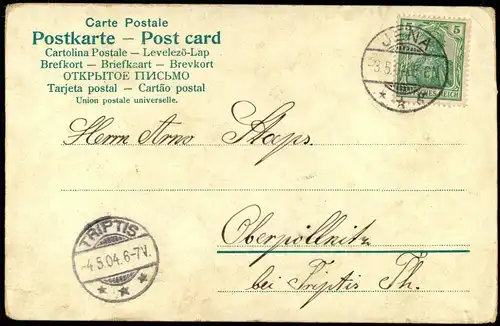 Carte Postale
Postkarte – Post card
Cartolina Postale – Levelezö-Lap
Brefkort – Briefkaart – Brevkort
ОТКРЫТОЕ ПИСЬМО
Tarjeta postal – Cartão postal
Union postale universelle.
5 5
JENA
Herrn Arno Staps.
Oberpöllnitz
bei Triptis Th.
TRIPTIS
-4.5.04.6-7V.